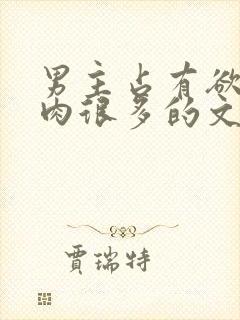 男主占有欲
肉很多的文
贾瑞特